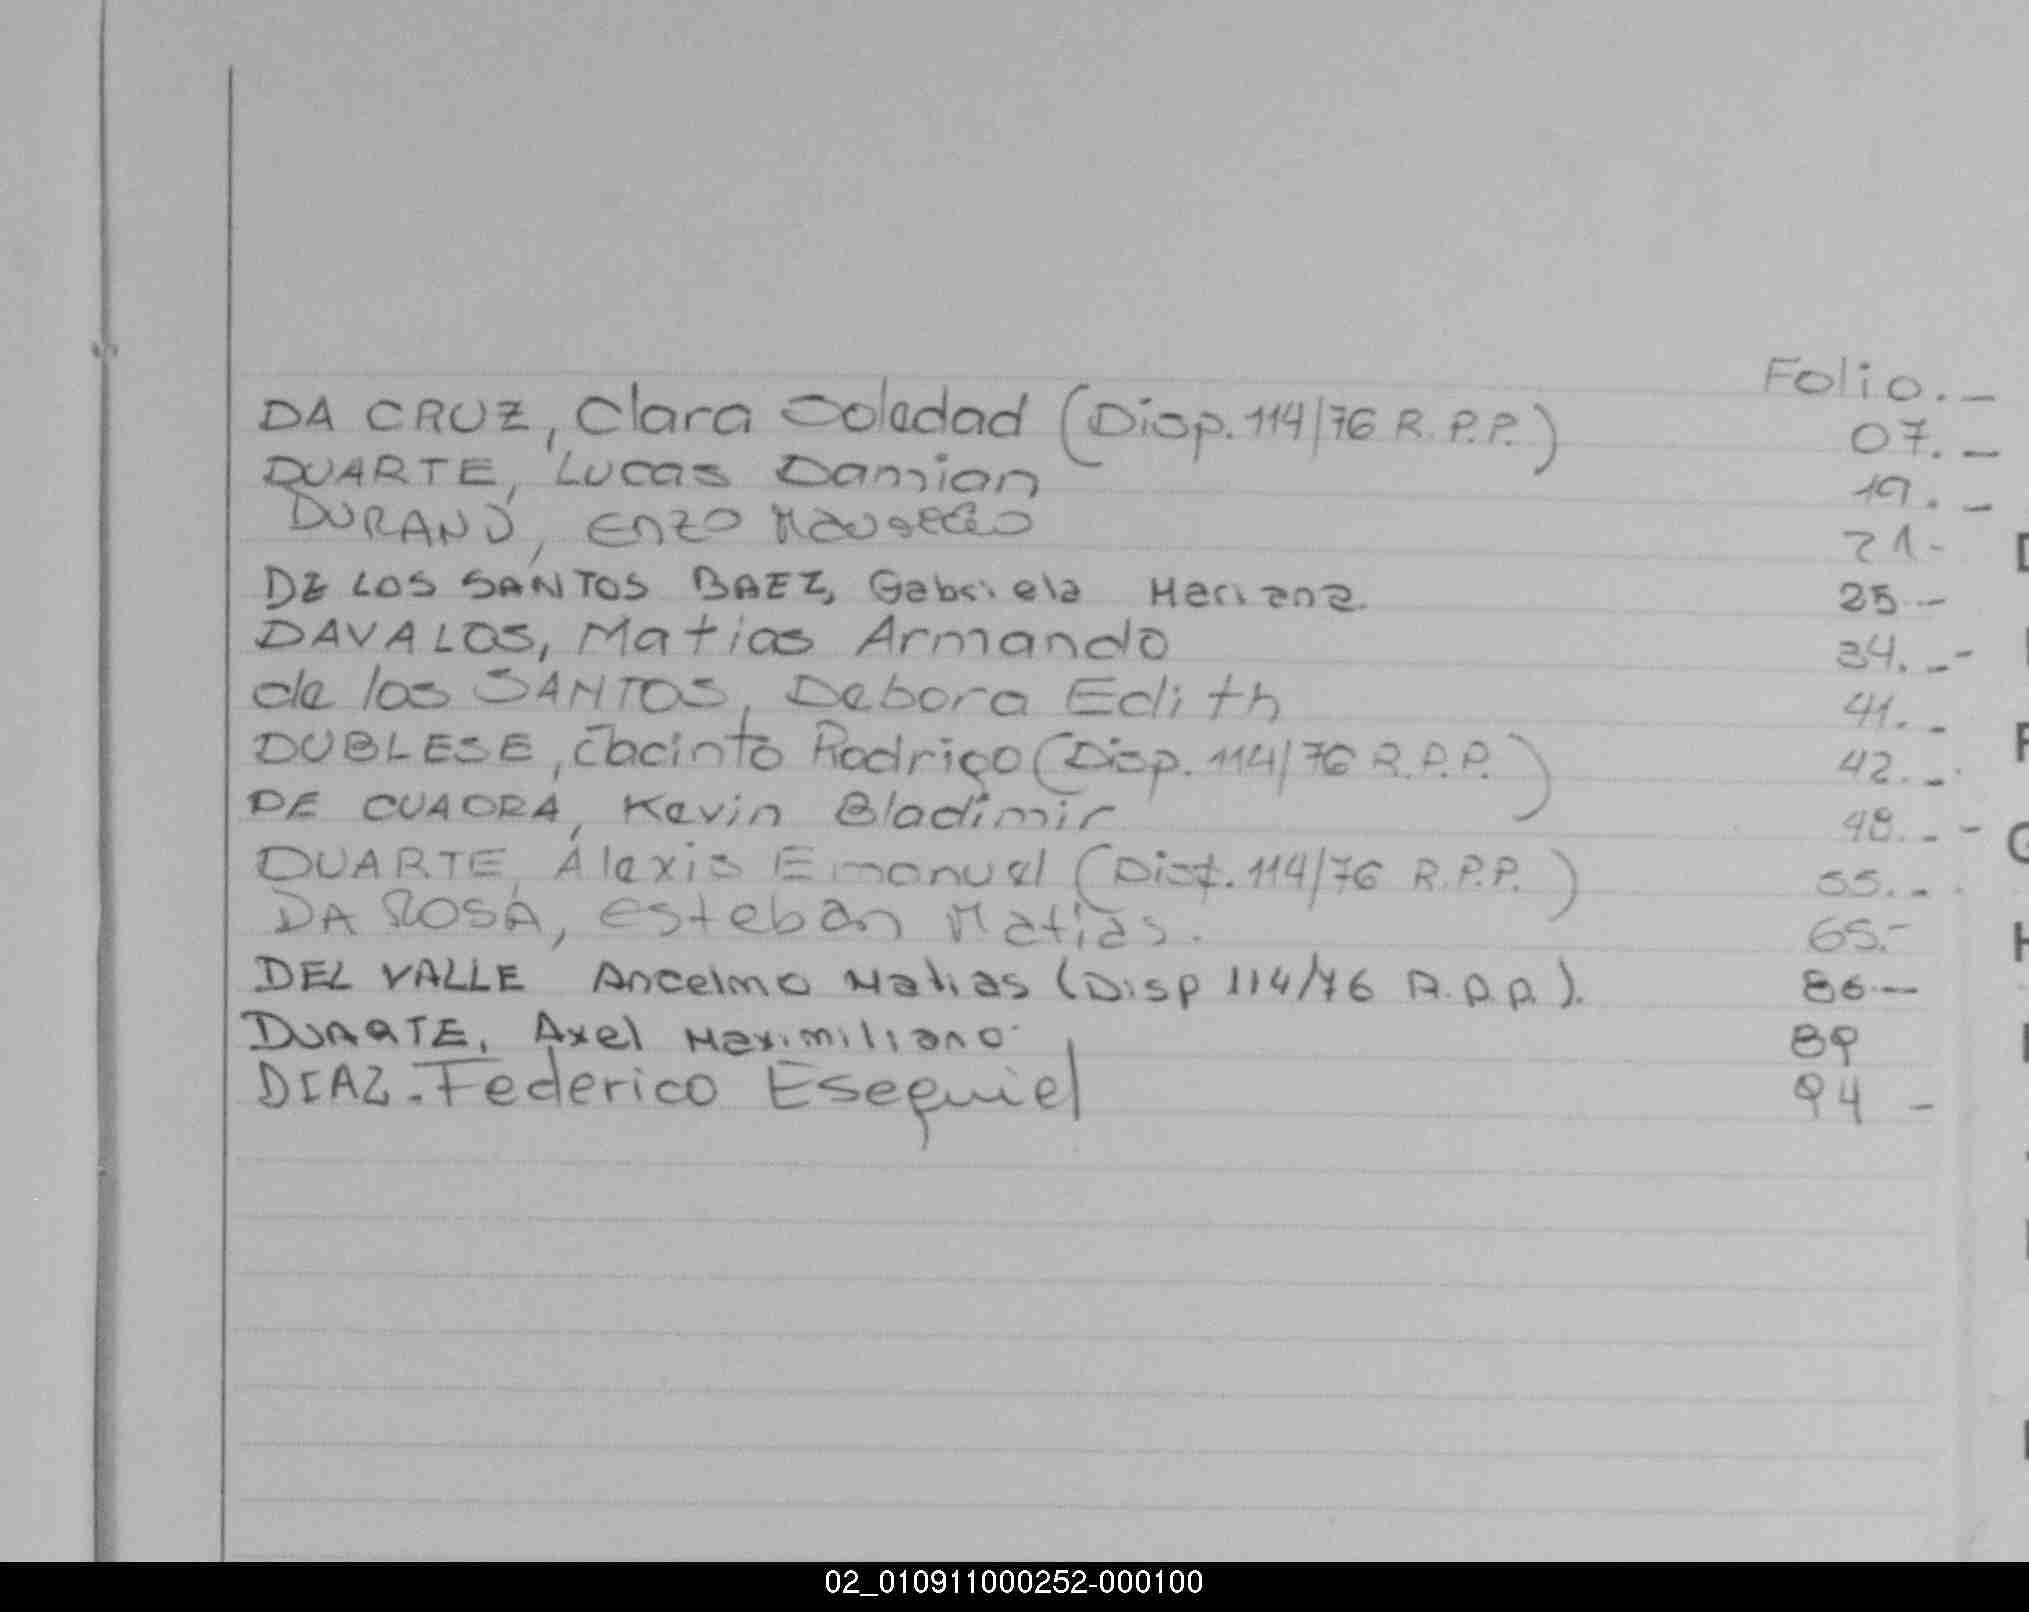 Folio.-
DA CRUZ, Clara Soledad (Disp. 114/76 R.P.P.) 07.-
DUARTE, Lucas Damian 19.-
DURAND, Enzo 21-
DE LOS SANTOS BAEZ, Gabriela Mariana. 25.-
DAVALOS, Matias Armando 34.-
de los SANTOS, Debora Edith 41.-
DUBLESE, Jacinto Rodrigo (Disp. 114/76 R.P.P.) 42.-
DE CUADRA, Kevin Bladimir 48.-
DUARTE, Alexis Emanuel (Dist. 114/76 R.P.P.) 55.-
DA ROSA, Esteban Matias. 65.-
DEL VALLE Ancelmo Matias (Disp 114/76 R.P.P.). 86.-
DUARTE, Axel Maximiliano 89
DIAZ. Federico Esequiel 94 -
02_010911000252-000100